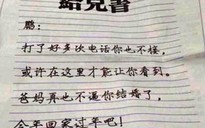 给儿书
鹏:
打了好多次电话你也不接,
或许在这里才能让你看到。
爸妈再也不逼你结婚了,
今年回家过年吧!